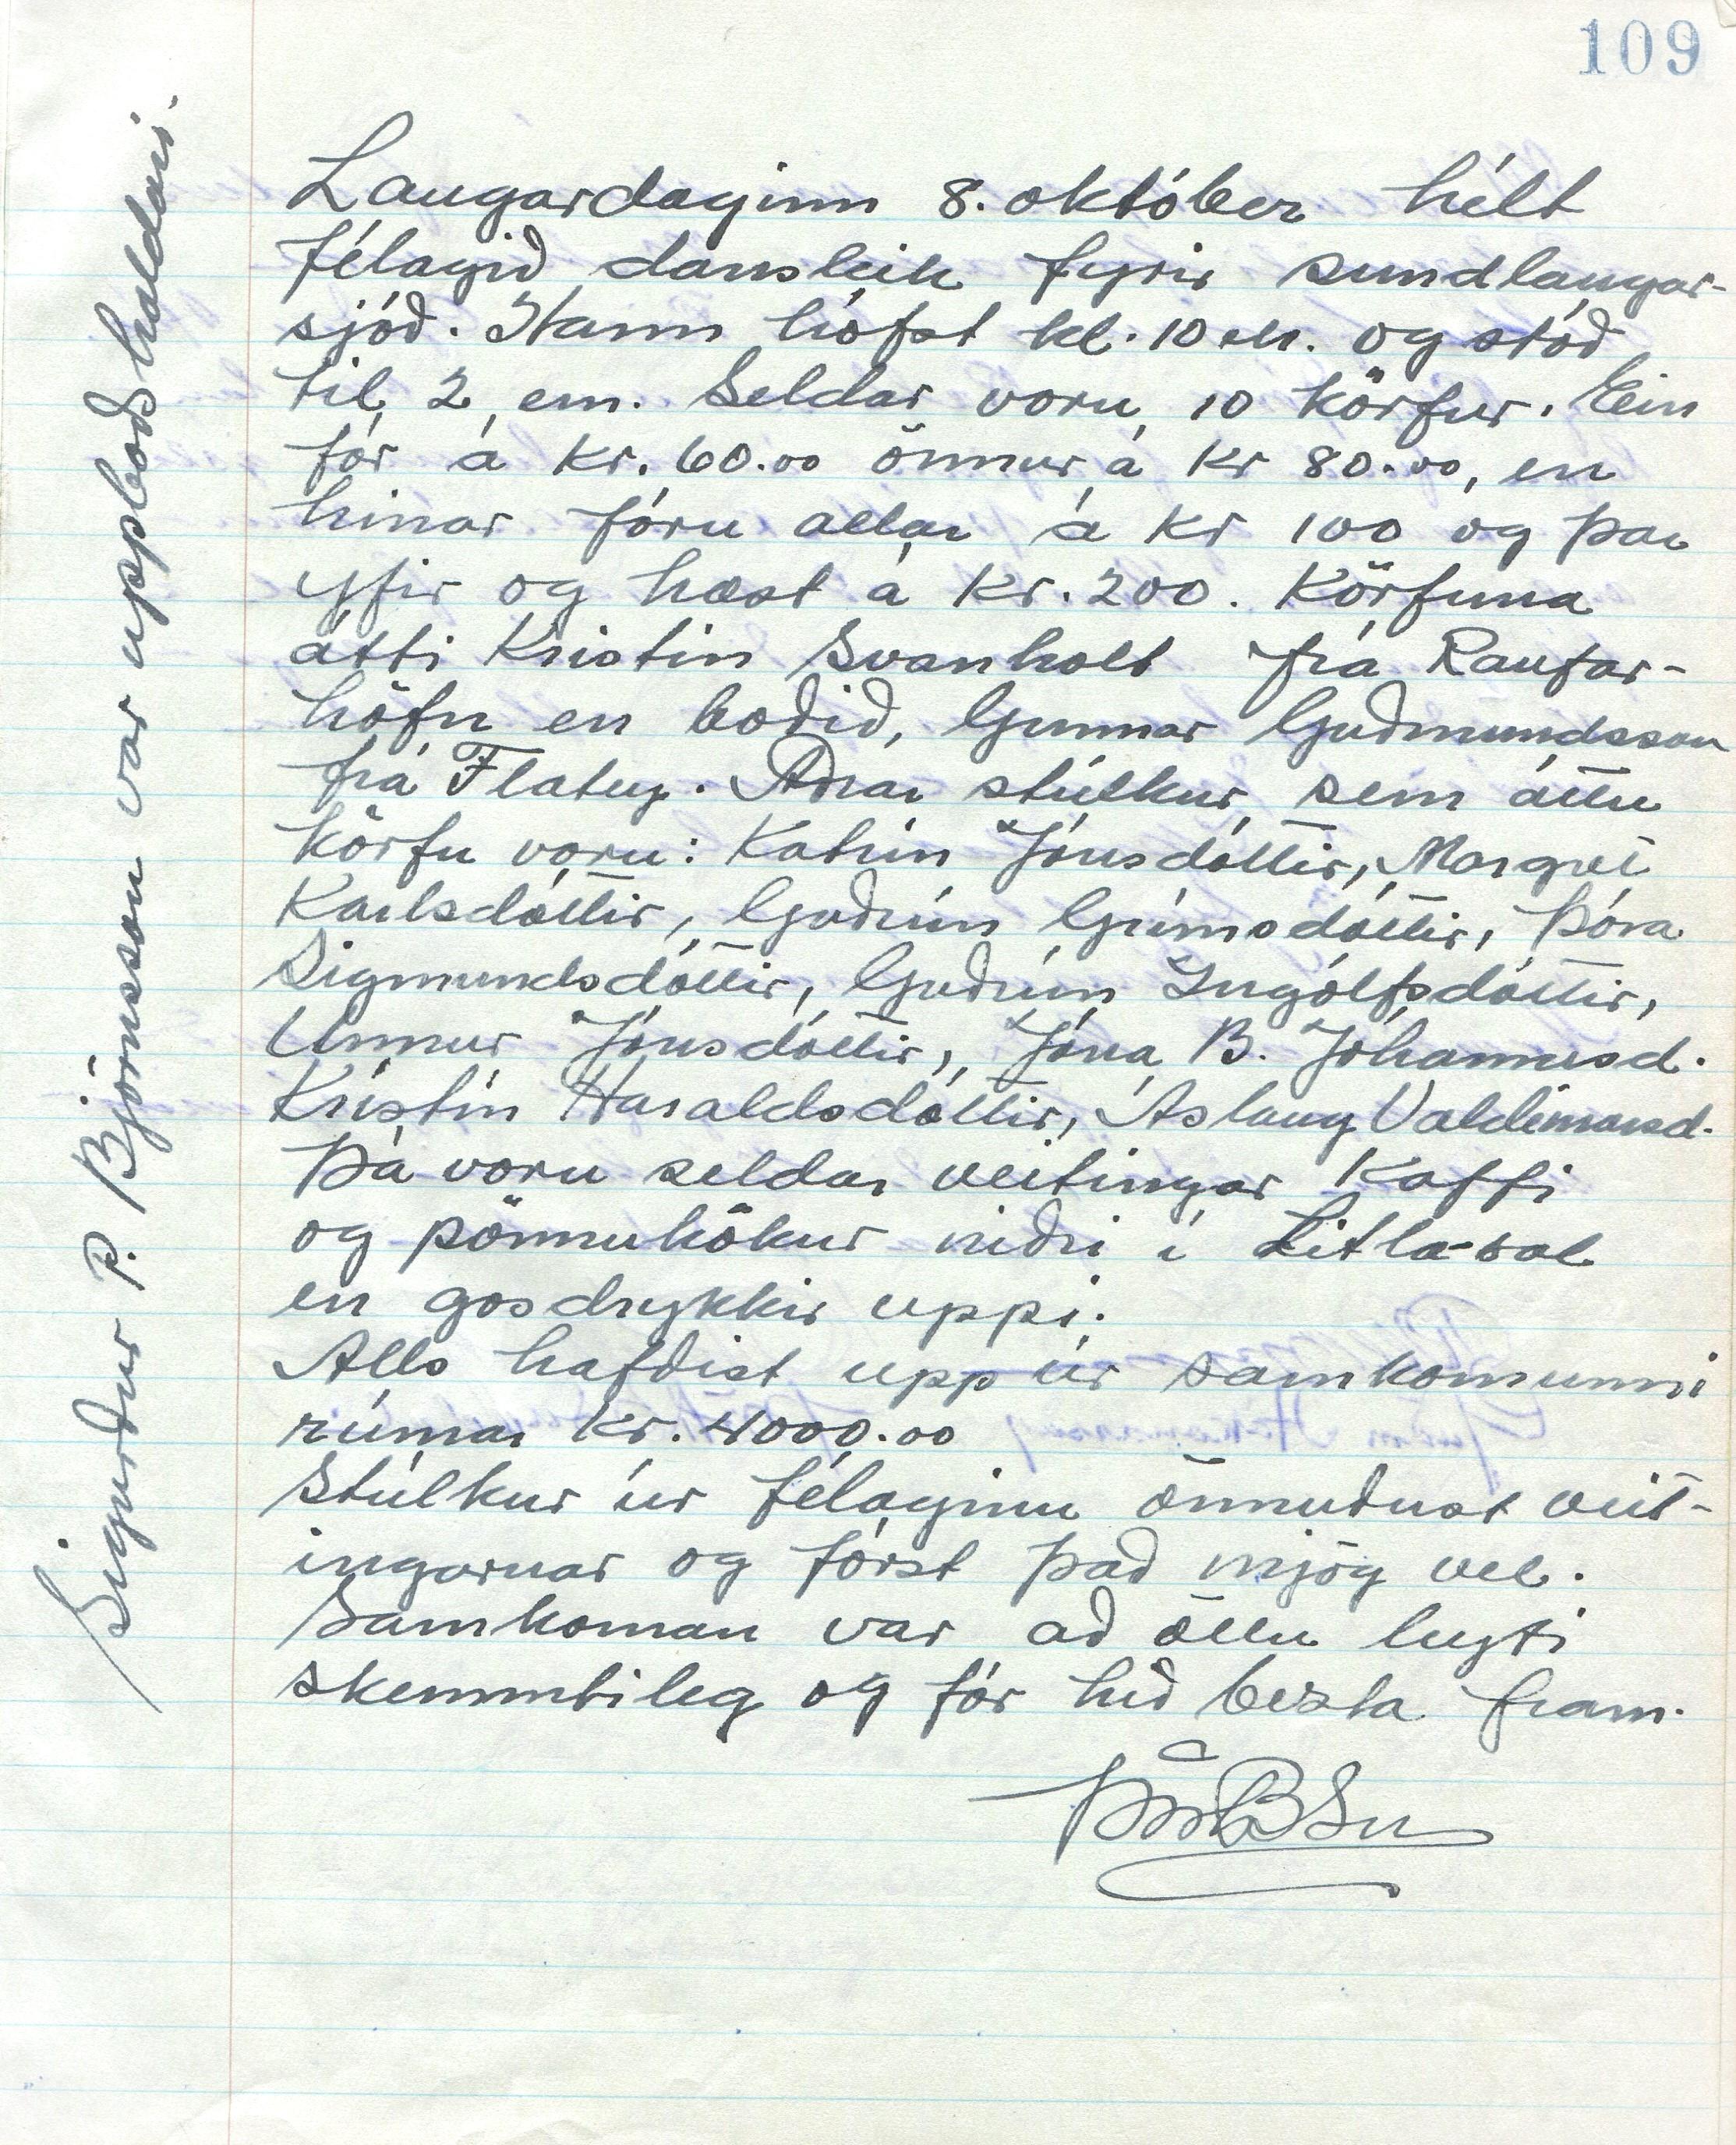 109
Laugardaginn 8. október hélt
félagið dansleik fyrir sundlaugar-
sjóð. Hann hófst kl. 10 eh. og stóð
til 2 em. Seldar voru 10 körfur. Ein
fór á Kr. 60.00 önnur á Kr 80.00, en
hinar fóru allar á Kr 100 og þar
yfir og hæst á Kr. 200. Körfuna
átti Kristín Svanholt frá Raufar-
höfn en boðið, Gunnar Guðmundsson
frá Flatey. Aðrar stúlkur sem áttu
körfu voru: Katrín Jónsdóttir, Margrét
Karlsdóttir, Guðrún Grímsdóttir, Þóra
Sigmundsdóttir, Guðrún Ingólfsdóttir,
Unnur Jónsdóttir, Jóna B. Jóhannesd.
Kristín Haraldsdóttir, Áslaug Valdimarsd.
Þá voru seldar veitingar Kaffi
og pönnukökur niðri í Litla-sal
en gosdrykkir uppi.
Alls hafðist upp úr samkomunni
rúmar Kr. 4000.00
Stúlkur úr félaginu önnuðust veit-
ingarnar og fórst það mjög vel.
Samkoman var að öllu leyti
skemmtileg og fór hið bezta fram.
Sigurður P. Björnsson var uppboðshaldari.